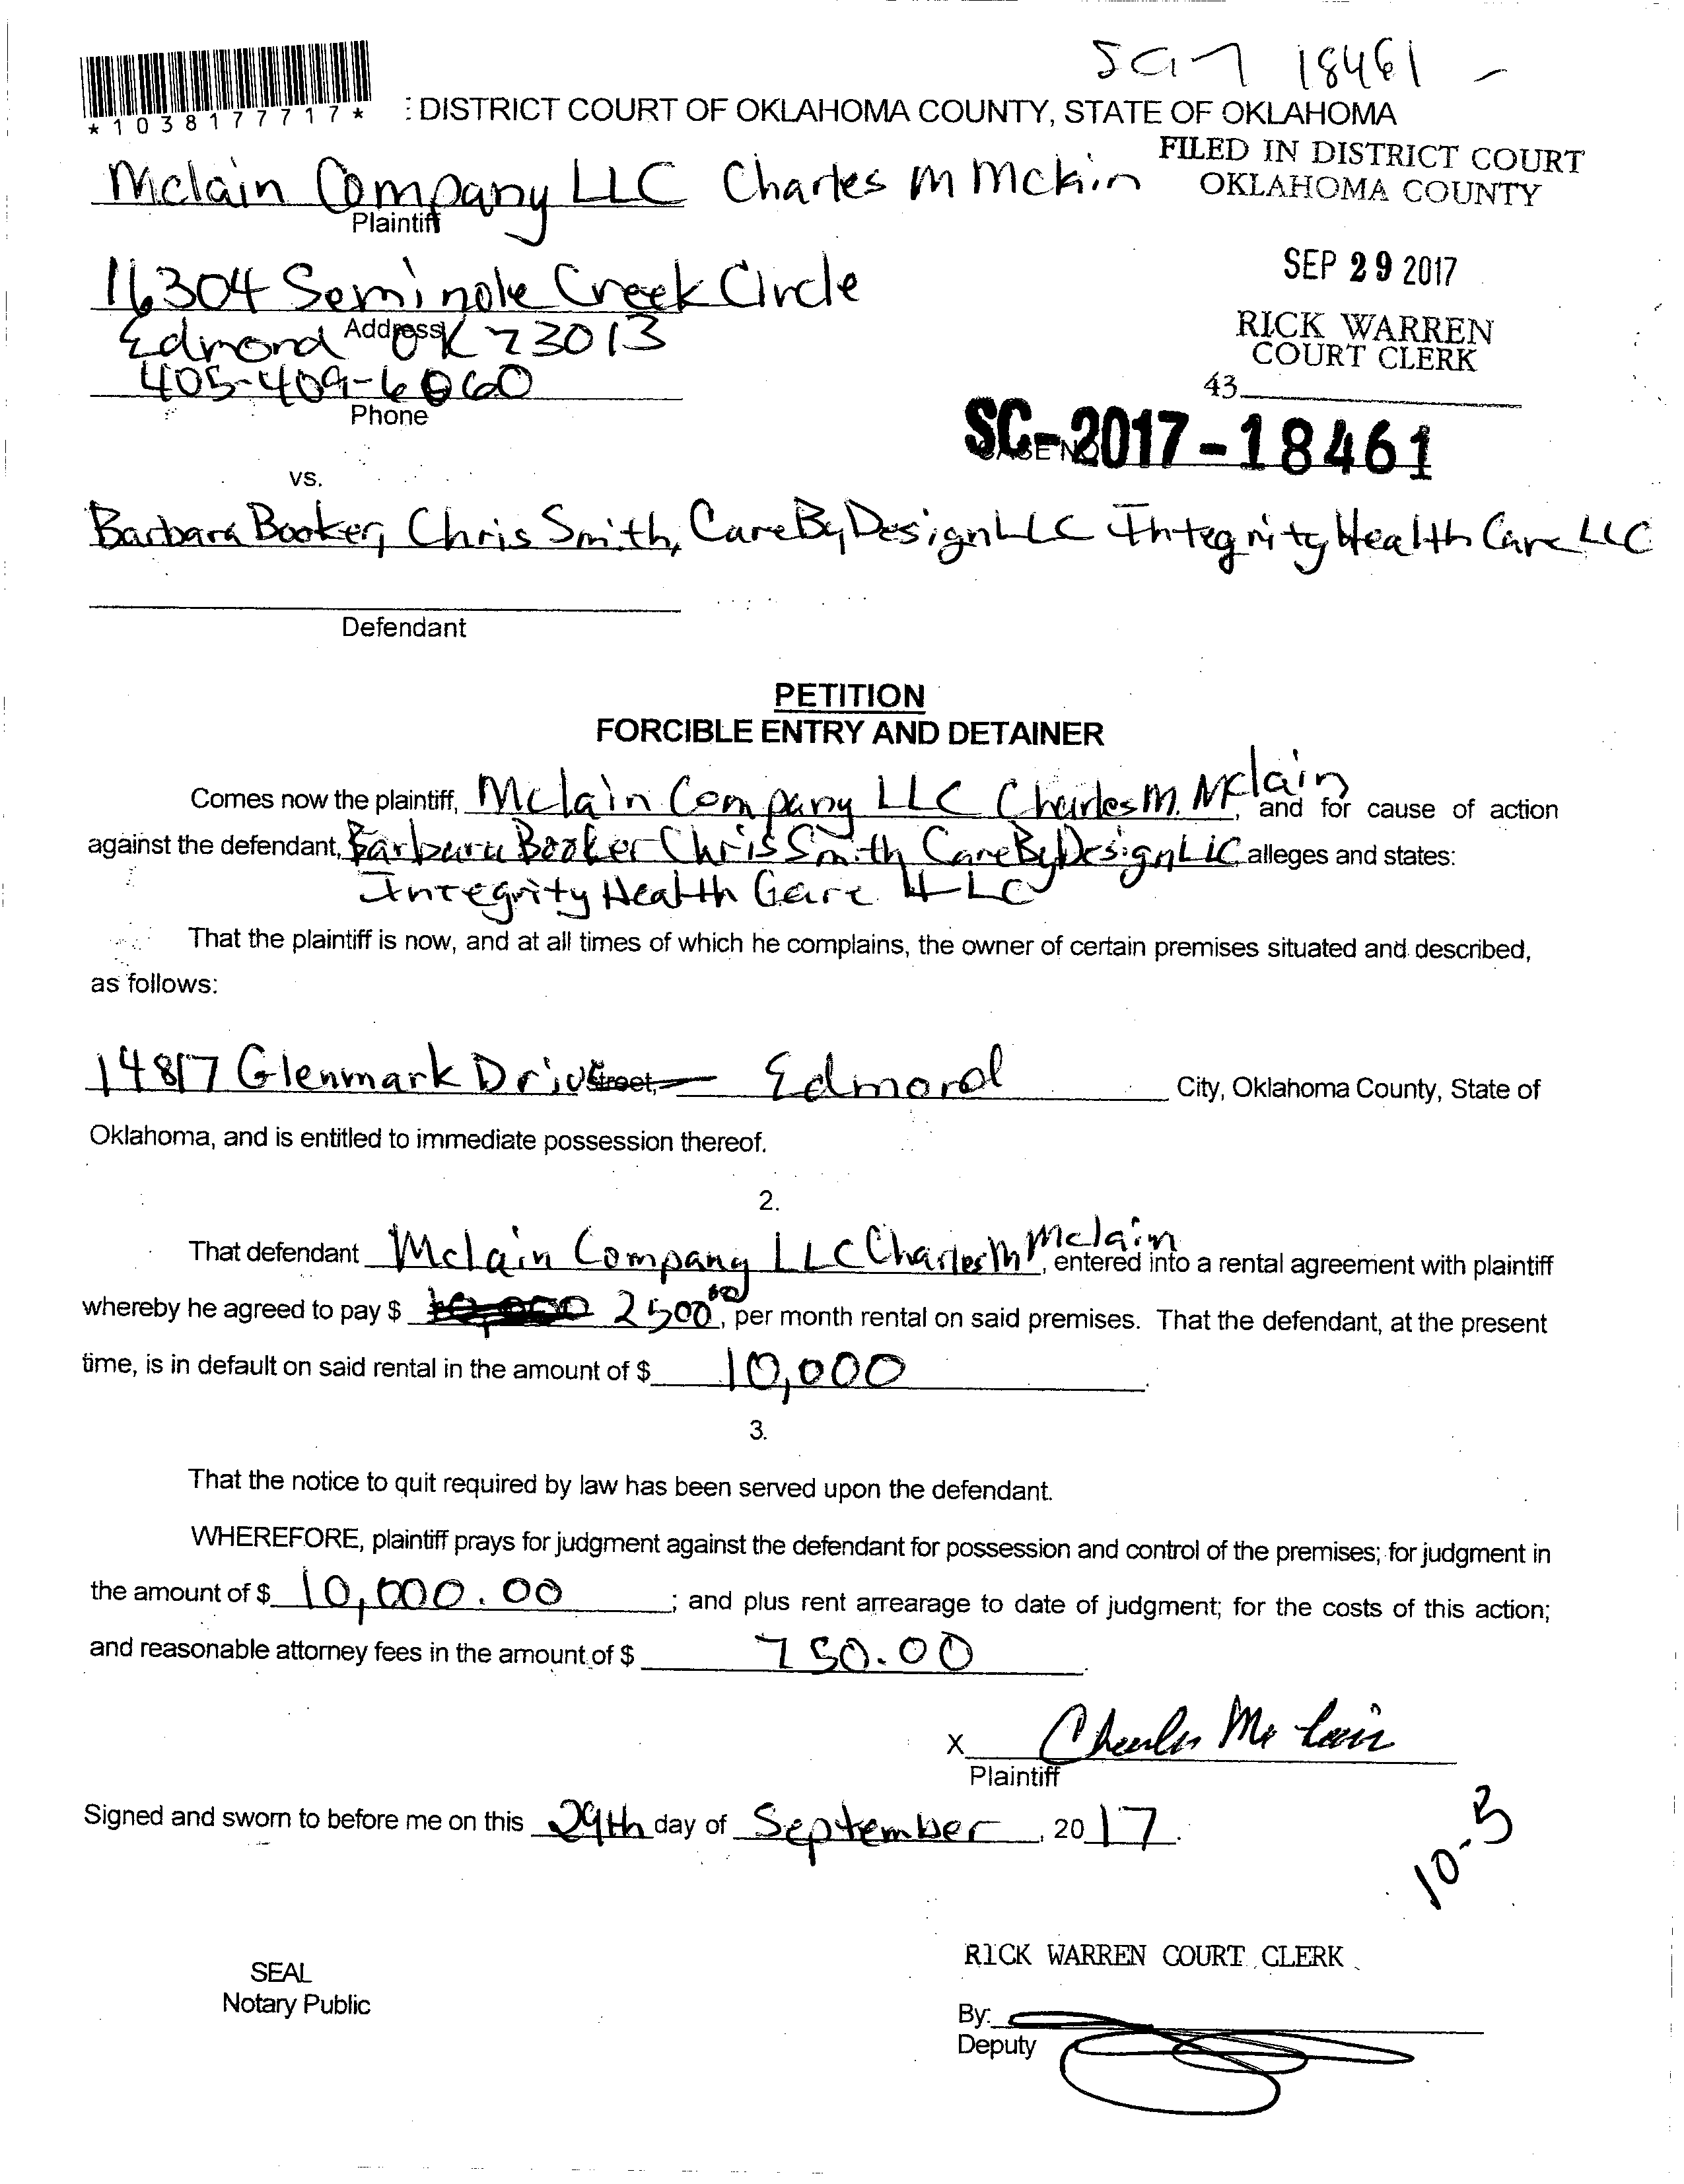 SC17 18461 -
*1038177717*
: DISTRICT COURT OF OKLAHOMA COUNTY, STATE OF OKLAHOMA
FILED IN DISTRICT COURT
OKLAHOMA COUNTY
Mclain Company LLC Charles M Mclain
Plaintiff
SEP 29 2017
16304 Seminole Creek Circle
Address
Edmond OK 73013
RICK WARREN
COURT CLERK
405-409-6060
43
Phone
SC-2017-18461
vs.
Barbara Booker, Chris Smith, CareByDesign LLC Integrity Health Care LLC
Defendant
PETITION
FORCIBLE ENTRY AND DETAINER
Comes now the plaintiff, Mclain Company LLC Charles M. Mclain, and for cause of action
against the defendant, Barbara Booker Chris Smith CareByDesign LLC alleges and states:
Integrity Health Care LLC
That the plaintiff is now, and at all times of which he complains, the owner of certain premises situated and described,
as follows:
14817 Glenmark Drive Street, Edmond City, Oklahoma County, State of
Oklahoma, and is entitled to immediate possession thereof.
2.
That defendant Mclain Company LLC Charles M Mclain, entered into a rental agreement with plaintiff
whereby he agreed to pay $ 10,000 2500 00, per month rental on said premises. That the defendant, at the present
time, is in default on said rental in the amount of $ 10,000.
3.
That the notice to quit required by law has been served upon the defendant.
WHEREFORE, plaintiff prays for judgment against the defendant for possession and control of the premises; for judgment in
the amount of $ 10,000.00; and plus rent arrearage to date of judgment; for the costs of this action;
and reasonable attorney fees in the amount of $ 750.00.
X Charles McLain
Plaintiff
Signed and sworn to before me on this 29th day of September, 2017.
10-3
RICK WARREN COURT CLERK
SEAL
Notary Public
By:
Deputy